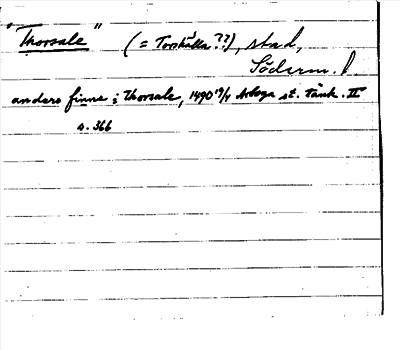 "Thorsale" (= Torshälla??), stad,
Söderm. l
anders finne i Thorsale, 1490 19/4 Arboga st. tänk. II
s. 366